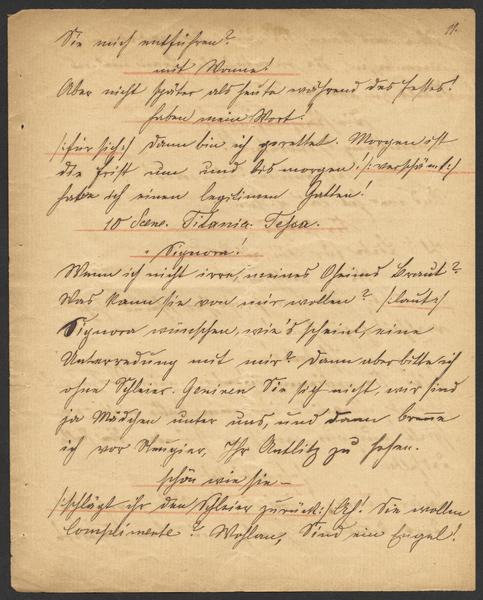 11.
Sie mich entführen?
mit Wonne!
Aber nicht später als heute während des Festes!
haben mein Wort!
/:für sich:/ dann bin ich gerettet. Morgen ist
die Frist um und bis morgen /:verschämt:/
habe ich einen legitimen Gatten!
10 Scene. Titania. Tessa.
Signora!
Wenn ich nicht irre, meines Oheims Braut?
Was kann sie von mir wollen? /:laut:/
Signora wünschen, wie's scheint, eine
Unterredung mit mir? dann aber bitte ich
ohne Schleier. Geniren Sie sich nicht, wir sind
ja Mädchen unter uns, und dann brenne
ich vor Neugier, Ihr Antlitz zu sehen.
schön wie sie –
/:schlägt ihr den Schleier zurück:/ Ah! Sie wollen
Complimente? Wohlan, Sind ein Engel!